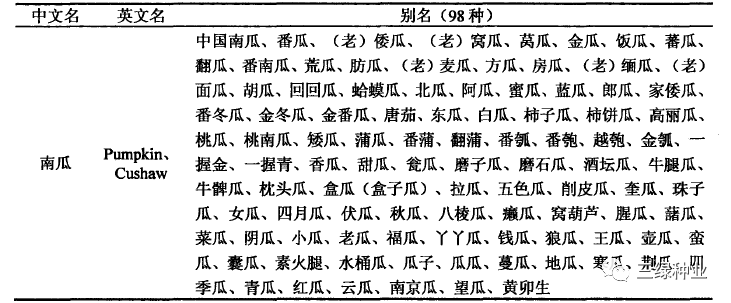 中文名 英文名 别名（98 种）
中国南瓜、番瓜、（老）倭瓜、（老）窝瓜、莴瓜、金瓜、饭瓜、蕃瓜、
翻瓜、番南瓜、荒瓜、肪瓜、（老）麦瓜、方瓜、房瓜、（老）缅瓜、（老）
面瓜、胡瓜、回回瓜、蛤蟆瓜、北瓜、阿瓜、蜜瓜、蓝瓜、郎瓜、家倭瓜、
番冬瓜、金冬瓜、金番瓜、唐茄、东瓜、白瓜、柿子瓜、柿饼瓜、高丽瓜、
桃瓜、桃南瓜、矮瓜、蒲瓜、番蒲、翻蒲、番瓠、番匏、越匏、金瓠、一
南瓜 Pumpkin、Cushaw 握金、一握青、香瓜、甜瓜、瓮瓜、磨子瓜、磨石瓜、酒坛瓜、牛腿瓜、
牛髀瓜、枕头瓜、盒瓜（盒子瓜）、拉瓜、五色瓜、削皮瓜、奎瓜、珠子
瓜、女瓜、四月瓜、伏瓜、秋瓜、八棱瓜、癞瓜、窝葫芦、腥瓜、蕏瓜、
菜瓜、阴瓜、小瓜、老瓜、福瓜、丫丫瓜、钱瓜、狼瓜、王瓜、壶瓜、蛮
瓜、囊瓜、素火腿、水桶瓜、瓜子、瓜瓜、蔓瓜、地瓜、寒瓜、荆瓜、四
季瓜、青瓜、红瓜、云瓜、南京瓜、望瓜、黄卵生
三绿种业